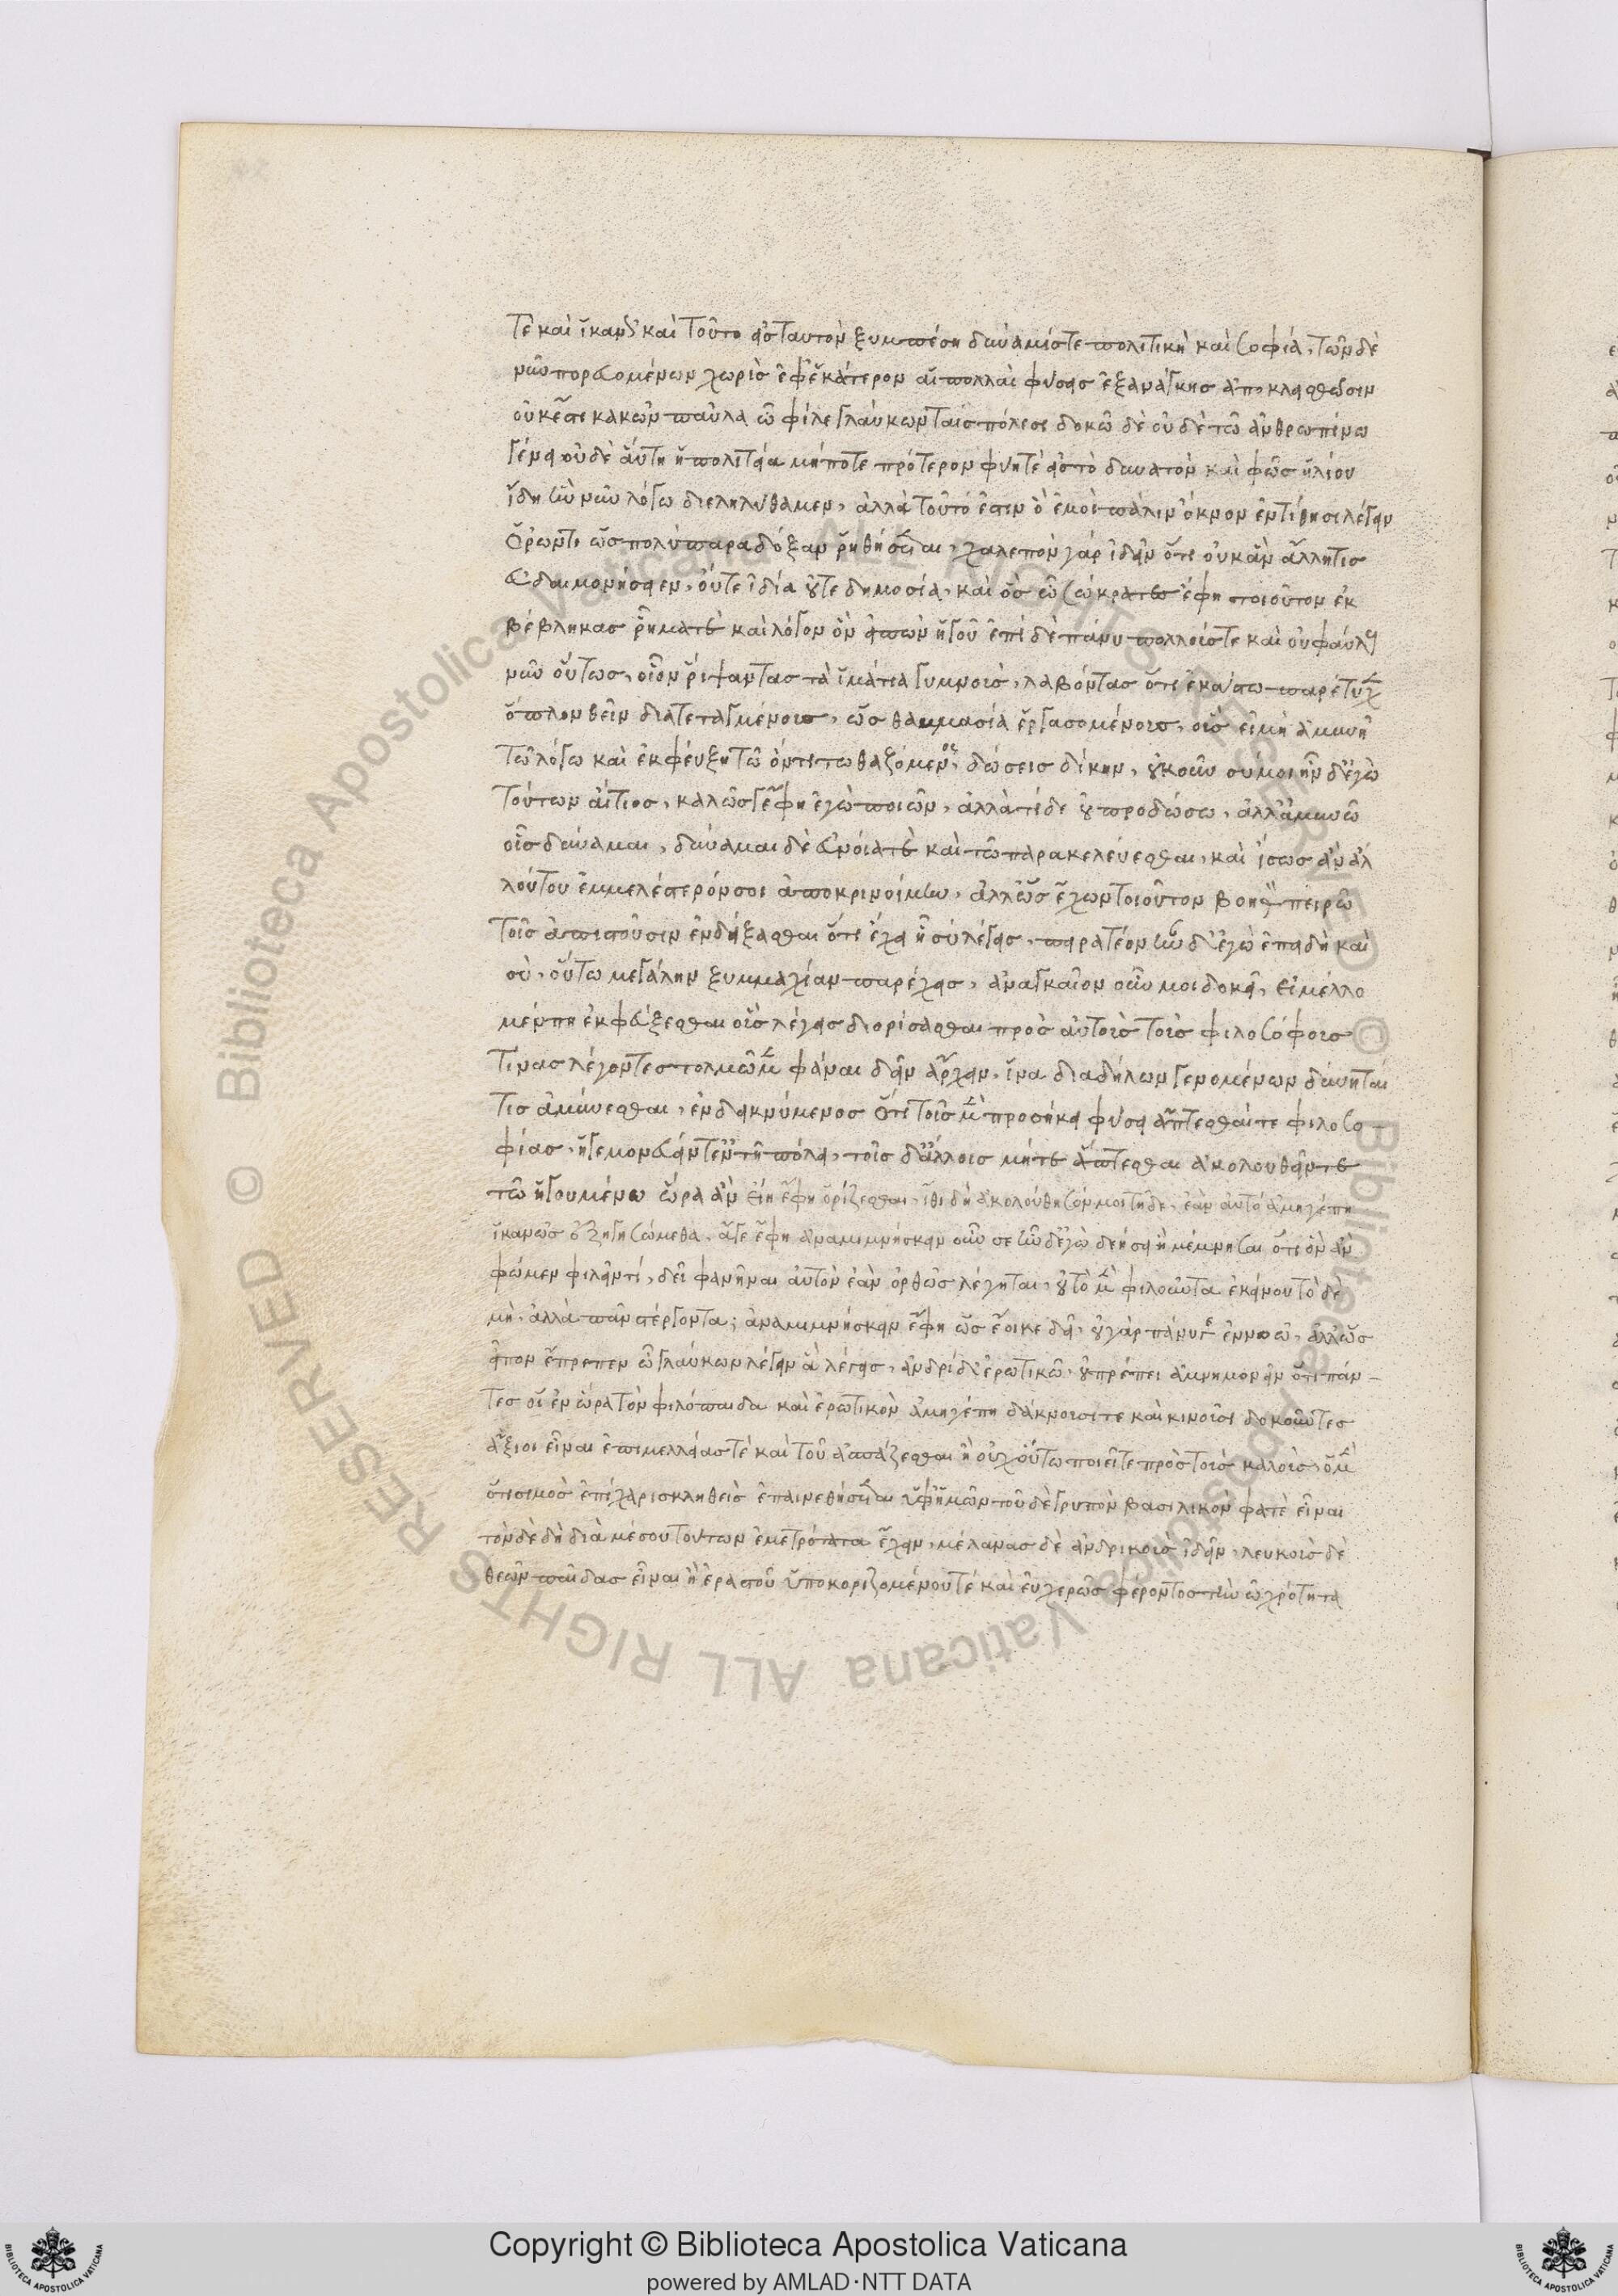 τε καὶ ἱκανῶς καὶ τοῦτο εἰς ταυτὸν ξυμπέση δύναμίς τε πολιτικὴ καὶ σοφία, τῶν δὲ
νῦν πορευομένων χωρὶς ἐφ' ἑκάτερον αἱ πολλαὶ φύσεις ἐξ ἀνάγκης ἀποκλεισθῶσιν
οὐκ ἔστι κακῶν παῦλα ὦ φίλε γλαύκων ταῖς πόλεσι δοκῶ δὲ οὐδὲ τῶ ἀνθρωπίνω
γένει οὐδὲ αὕτη ἡ πολιτεία μήποτε πρότερον φυῆ τὲ εἰς τὸ δυνατὸν καὶ φῶς ἡλίου
ἴδη ἣν νῦν λόγω διεληλύθαμεν, ἀλλὰ τοῦτό ἐστιν ὃ ἐμοὶ πάλιν ὄκνον ἐντίθησι λέγειν
ὁρῶντι ὡς πολὺ παρα δόξαν ῥηθήσεται, χαλεπὸν γὰρ ἰδεῖν ὅτι οὐκ ἂν ἄλλη τις
εὐδαιμονήσειεν, οὔτε ἰδία οὔτε δημοσία, καὶ ὃς ὦ σώκρατες ἔφη τοιοῦτον ἐκ
βέβληκας ῥῆμά τε καὶ λόγον ὃν εἰπὼν ἡγοῦ ἐπὶ δὲ πάνυ πολλοίς τε καὶ οὐ φαύλους
νῦν οὕτως, οἷον ῥίψαντας τὰ ἱμάτια γυμνοὶς, λαβόντας ὅτι ἑκάστω παρέτυχεν
ὅπλον θεῖν διατεταγμένοις, ὡς θαυμασία ἐργασομένοις, οἳς εἰ μὴ ἀμυνῆ
τῶ λόγω καὶ ἐκφεύξη τῶ ὄντι τωθαζόμενος, δώσεις δίκην, οὐκοῦν σύ μοι ἦν δ' ἐγὼ
τούτων αἴτιος, καλῶς γ' ἔφη ἐγὼ ποιῶν, ἀλλὰ τί δε οὐ προδώσω, ἀλλ' ἀμυνῶ
οἷς δύναμαι, δύναμαι δὲ εὐνοία τε καὶ τῶ παρακελεύεσθαι, καὶ ἴσως ἂν ἀλ
λού του ἐμμελέστερόν σοι ἀποκρινοίμην, ἀλλ' ὡς ἔχων τοιοῦτον βοηθὸν πειρῶ
τοῖς ἀπιστοῦσιν ἐνδείξασθαι ὅτι ἔχει ἧ σὺ λέγεις, πειρατέον ἦν δ' ἐγὼ ἐπειδὴ καὶ
σὺ, οὕτω μεγάλην ξυμμαχίαν παρέχεις, ἀναγκαῖον οὖν μοι δοκεῖ, εἰ μέλλο
μέν πη ἐκφεύξεσθαι οἳς λέγεις διορίσασθαι πρὸς αὐτοὶς τοὶς φιλοσόφοις
τίνας λέγοντες τολμῶμεν φάναι δεῖν ἄρχειν, ἵνα διαδήλων γενομένων δύνηταί
τις ἀμύνεσθαι, ἐνδεικνύμενος ὅτι τοῖς μὲν προσήκει φύσει ἅπτεσθαί τε φιλοσο
φίας, ἡγεμονεύειν τ' ἐν τῆ πόλει, τοῖς δ' ἄλλοις μήτε ἅπτεσθαι ἀκολουθεῖν τε
τῶ ἡγουμένω ὥρα ἂν εἴη ἔφη ὁρίζεσθαι, ἴθι δὴ ἀκολούθησόν μοι τῆδε, ἐὰν αὐτό ἁμηγέπη
ἱκανῶς ἐξηγησώμεθα, ἄγε ἔφη ἀναμιμνήσκειν οὖν σε ἦν δ' ἐγὼ δεήσει ἢ μέμνησαι ὅτι ὃν ἂν
φῶμεν φιλεῖν τί, δεῖ φανῆναι αὐτὸν ἐὰν ὀρθῶς λέγηται, οὐ τὸ μὲν φιλοῦντα ἐκείνου τὸ δὲ
μὴ, ἀλλὰ πᾶν στέργοντα; ἀναμιμνήσκειν ἔφη ὡς ἔοικε δεῖ, οὐ γὰρ πάνυ γε ἐννοῶ, ἄλλω
εἶπον ἔπρεπεν ὦ γλαύκων λέγειν ἃ λέγεις, ἀνδρὶ δ' ἐρωτικῶ, οὐ πρέπει ἀμνημονεῖν ὅτι πάν-
τες οἱ ἐν ὥρα τὸν φιλόπαιδα καὶ ἐρωτικὸν ἁμηγέπη δάκνουσί τε καὶ κινοῦσι δοκοῦντες
ἄξιοι εἶναι ἐπιμελείας τὲ καὶ τοῦ ἀσπάζεσθαι ἢ οὐχ οὕτω ποιεῖτε πρὸς τοὶς καλοὶς, ὁ μὲν
ὅτι σιμὸς ἐπίχαρις κληθεὶς ἐπαινεθήσεται ὑφ' ἡμῶν τοῦ δὲ γρυπὸν βασιλικόν φατὲ εἶναι
τὸν δὲ δὴ διὰ μέσου τούτων ἐμετρότατα ἔχειν, μέλανας δὲ ἀνδρικοὶς ἰδεῖν, λευκοὶς δὲ
θεῶν παῖδας εἶναι ἢ ἐραστοῦ ὑποκοριζομένου τέ καὶ εὐχερῶς φέροντος τὴν ὠχρότητα
© Biblioteca Apostolica Vaticana ALL RIGHTS RESERVED
Copyright © Biblioteca Apostolica Vaticana
powered by AMLAD·NTT DATA